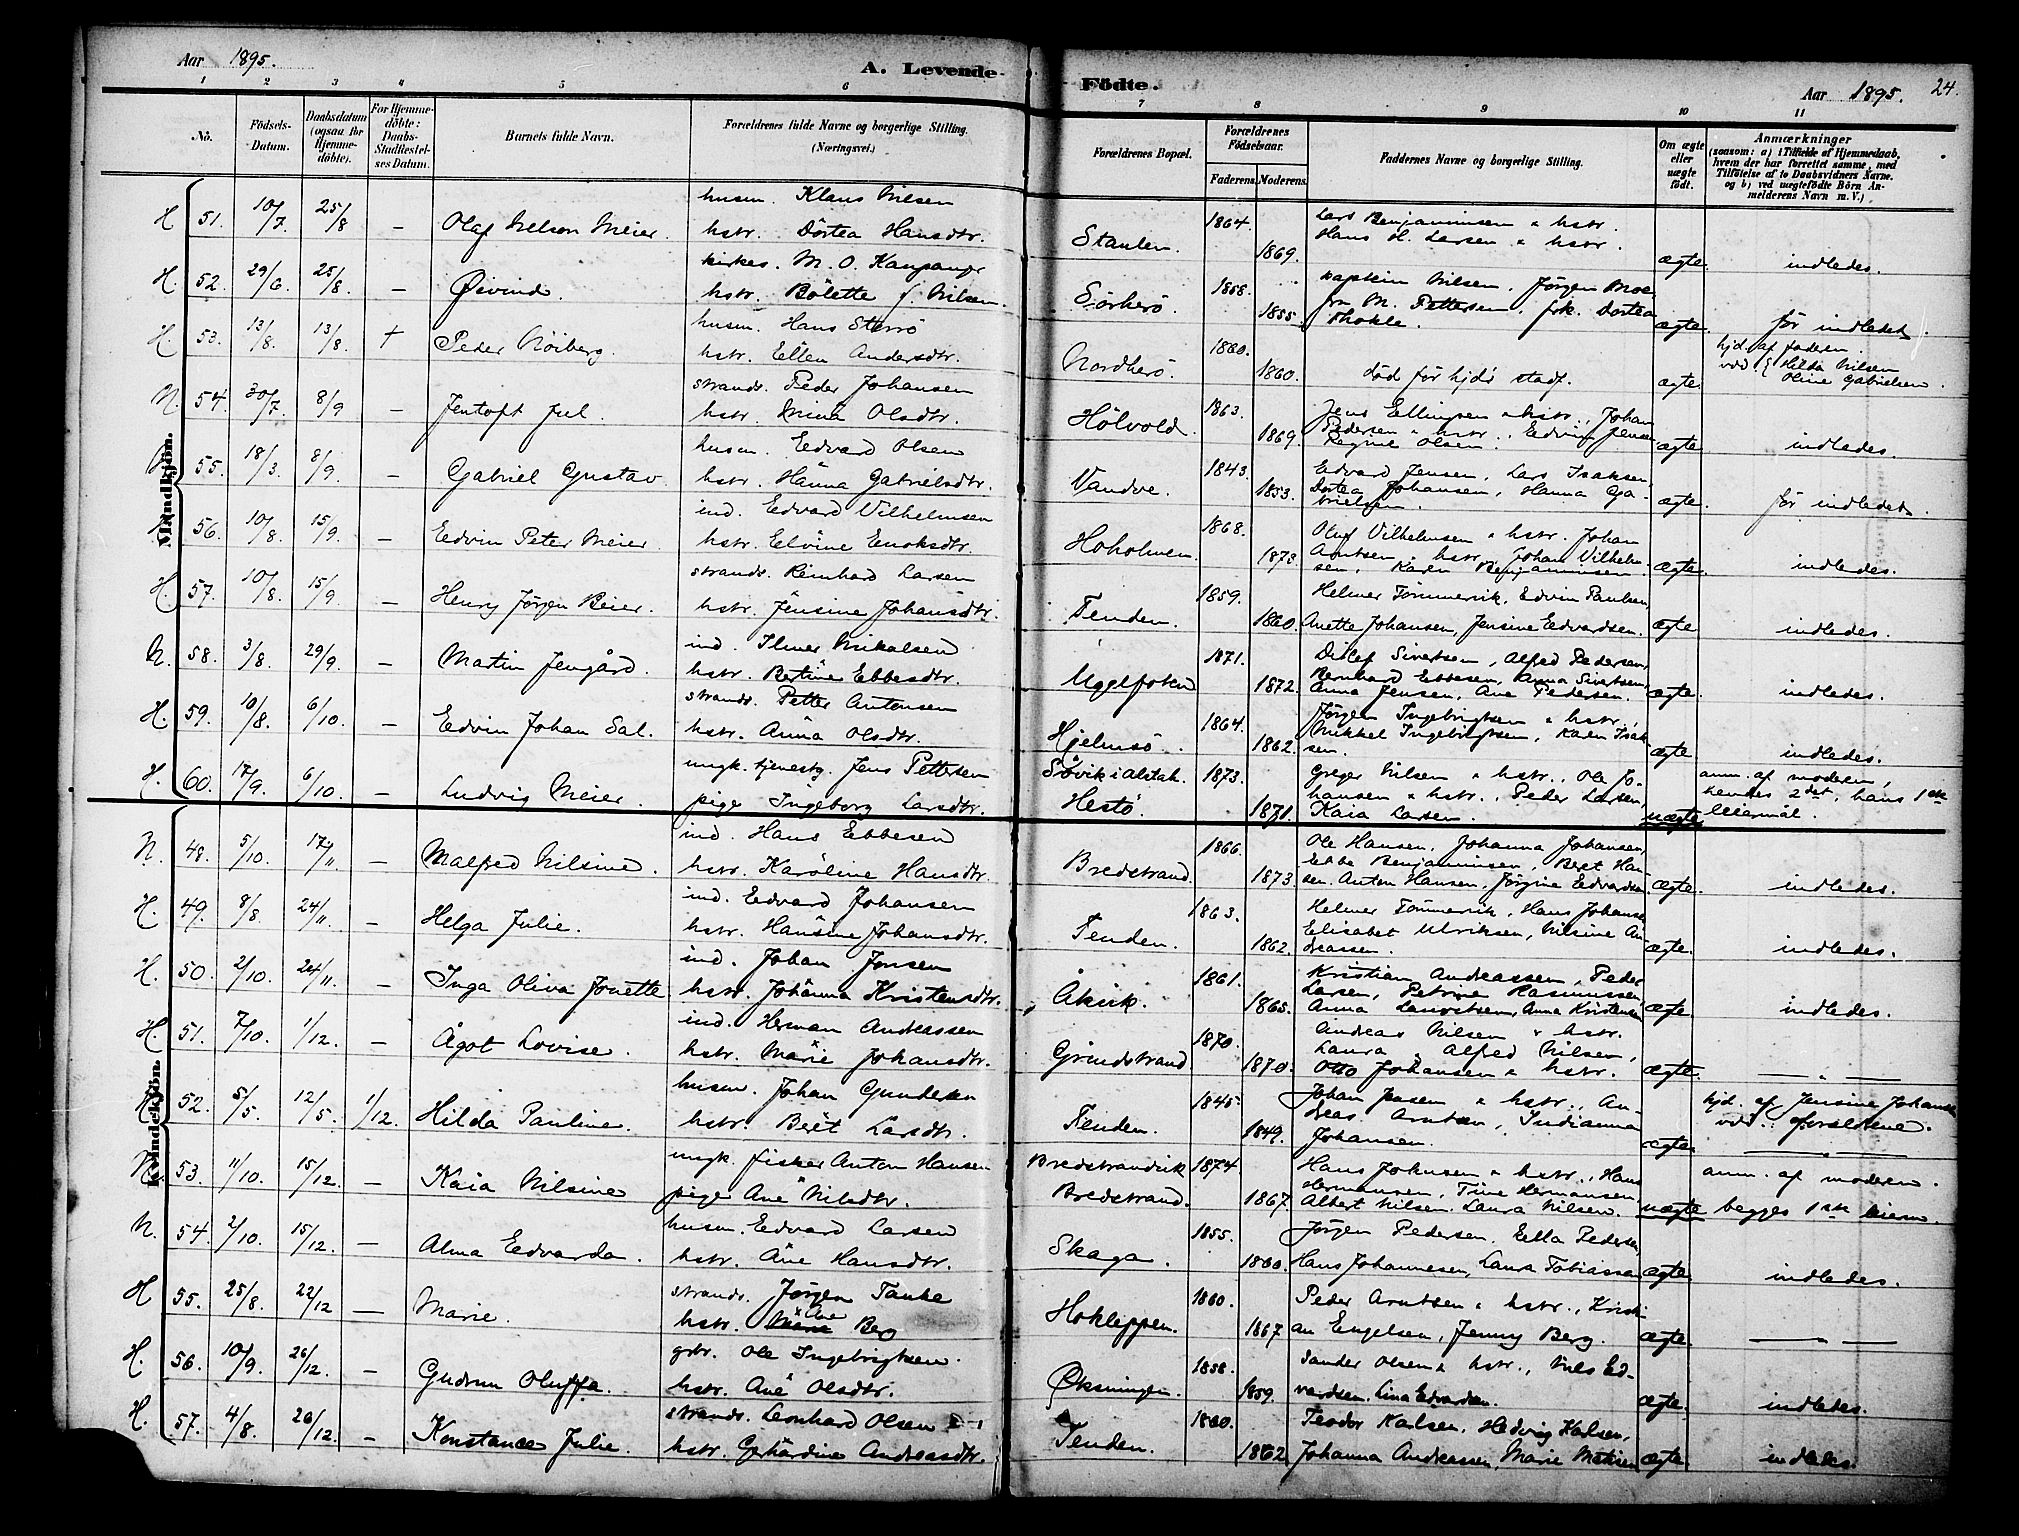 Aar 1895. A. Levende Födte. Aar 1895. 24.
1 2 3 4 5 6 7 8 9 10 11
No. Födsels-Datum. Daabsdatum (ogsaa for Hjemmedöbte). For Hjemmedöbte: Daabs-Stadfæstelses Datum. Barnets fulde Navn. Forældrenes fulde Navne og borgerlige Stilling. (Næringsvei.) Forældrenes Bopæl. Forældrenes Födselsaar. Faderens. Moderens. Faddernes Navne og borgerlige Stilling. Om ægte eller uægte födt. Anmærkninger (saasom: a) i Tilfælde af Hjemmedaab, hvem der har forrettet samme, med Tilföielse af to Daabsvidners Navne. og b) ved uægtefödte Börn Anmelderens Navn m. V.)
Mandkjön.
H 51. 10/7. 25/8 – Olaf Nelson Meier. husm. Klaus Nilsen
hstr. Dortea Hansdtr. Staulen. 1864. 1869. Lars Benjaminsen & hstr.
Hans H. Larsen & hstr. ægte. indledes.
H. 52. 29/6 25/8. – Øivind. kirkes. M. O. Kaupanger
hstr. Bolette f. Nilsen. Sörherö. 1858. 1855. kaptein Nilsen, Jörgen Moe,
fru M. Pettersen, frk. Dortea
Thokle. ægte. för indledet.
H. 53. 13/8. 13/8. † Peder Nöiberg. husm. Hans Sterrö
hstr. Ellen Andersdtr. Nordherö. 1860. 1860. död för hjd's stadf. ægte. hjd. af faderen
ved Hilda Nilsen
Oline Gabrielsen.
N. 54. 30/7. 8/9 – Jentoft Jul. strands. Peder Johansen
hstr. Mina Olsdtr. Hölvold. 1863. 1869. Jens Ellingsen & hstr., Johan
Pedersen & hstr., Edvin Jensen
Regine Olsen. ægte. indledes.
55. 18/3. 8/9 – Gabriel Gustav husm. Edvard Olsen
hstr. Hanna Gabrielsdtr. Vandve. 1843. 1853. Edvard Jensen, Lars Isaksen,
Dortea Johansen, Hanna Gabrielsen. ægte. för indledet.
56. 10/8. 15/9. – Edvin Peter Meier. ind. Edvard Vilhelmsen
hstr. Elvine Enoksdtr. Hoholmen. 1868. 1873. Oluf Vilhelmsen & hstr. Johan
Arntsen & hstr. Johan Vilhelmsen, Karen Benjaminsen. ægte. indledes.
H. 57. 10/8. 15/9 – Henry Jörgen Beier. strands. Reinhard Larsen
hstr. Jensine Johansdtr. Tenden. 1859. 1860. Helmer Tömmervik, Edvin Paulsen,
Anette Johansen, Jensine Edvardsen. ægte indledes.
N. 58. 3/8. 29/9. – Martin Jengård. ind. Ilmer Nikolsen
hstr. Bertine Ebbesdtr. Uggelfoten 1871. 1872. Ditlef Sivertsen, Alfred Pedersen,
Bernhard Ebbesen, Anna Sivertsen,
Anna Jensen, Ane Pedersen. ægte. indledes.
H. 59. 10/8. 6/10. – Edvin Johan Sal. strands. Petter Antonsen
hstr. Anna Olsdtr. Hjelmsö. 1864. 1862. Jörgen Ingebrigtsen & hstr.,
Mikkel Ingebrigtsen, Karen Isaksen. ægte indledes.
H. 60. 17/9. 6/10. – Ludvig Meier. ungk. tjenestg. Jens Pettersen
pige Ingeborg Larsdtr. Søvik i Alstah. Hestö. 1873. 1871. Greger Nilsen & hstr., Ole Johansen & hstr., Peder Larsen,
Kaia Larsen. uægte anm. af moderen,
hendes 2det, hans 1ste
leiermål.
Kvindekjön.
N. 48. 5/10. 17/11 – Malfred Nilsine. ind. Hans Ebbesen
hstr. Karoline Hansdtr. Bredstrand. 1866. 1873. Ole Hansen, Johanna Johansen,
Ebbe Benjaminsen, Beret Hansen. Anton Hansen. Jörgine Edvardsen ægte. indledes.
H. 49. 8/8. 24/11. – Helga Julie. ind. Edvard Johansen
hstr. Hansine Johansdtr. Tenden. 1863. 1862. Helmer Tömmervik, Hans Johansen
Elisabet Ulriksen, Nilsine Andreassen. ægte. indledes.
H. 50. 2/10. 24/11. – Inga Oliva Jonette ind. Johan Jonsen
hstr. Johanna Kristensdtr. Åkvik. 1861. 1865. Kristian Andreassen, Peder
Larsen, Petrine Rasmussen,
Anna Kristensen ægte. indledes.
H. 51. 7/10. 1/12. – Ågot Lovise. ind. Herman Andreassen
hstr. Marie Johansdtr. Grindstrand. 1870. 1870. Andreas Nilsen & hstr.
Laura & Alfred Nilsen,
Otto Johansen & hstr. ægte. — " —
52. 5/5. 12/5. 1/12. Hilda Pauline. husm. Johan Gundersen
hstr. Berit Larsdtr. Tenden. 1845. 1849. Johan Jensen & hstr., Andreas Arntsen, Indianna
Johansen. ægte. hjd. af Jensine Johansen
ved forældrene.
— " —
N. 53. 11/10. 15/12. – Kaia Nilsine ungk. fisker Anton Hansen
pige Ane Nilsdtr. Bredstrandvik Bredstrand. 1874 1867. Hans Johnsen & hstr., Hans
Hermansen, Tine Hermansen,
Albert Nilsen. Laura Nilsen. uægte anm. af moderen.
begges 1ste leierm.
N. 54. 2/10. 15/12. – Alma Edvarda. husm. Edvard Larsen
hstr. Ane Hansdtr. Skaga. 1855. 1860. Jörgen Pedersen. Ella Pedersen,
Hans Johannesen, Laura Tobiassen ægte. indledes.
H 55. 25/8. 22/12 – Marie. strands. Jörgen Tanke
hstr. Ane Berg Hokleppen. 1860. 1867 Peder Arntsen & hstr., Kristian Engelsen, Jenny Berg. ægte. — " —
H. 56. 10/9. 26/12. – Gudrun Oluffa. gbr. Ole Ingebrigtsen.
hstr. Ane Olsdtr. Øksningen. 1858. 1859. Sander Olsen & hstr., Nils Edvardsen. Lina Edvardsen. ægte. indledes.
H. 57. 4/8. 26/12. – Konstance Julie. strands. Leonhard Olsen
hstr. Gerhardine Andreasdtr. Tenden. 1860. 1862 Teodor Karlsen, Hedvig Karlsen,
Johanna Andreassen, Marie Matisen ægte. indledes.